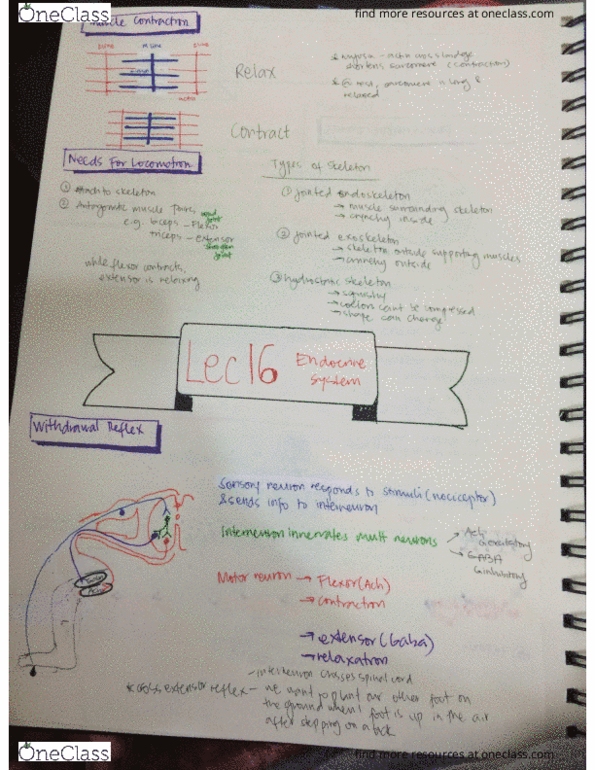 OneClass
find more resources at oneclass.com
Muscle Contraction
Relax
Contract
* Myosin - actin cross bridge
shortens sarcomere (contraction)
* @ rest, sarcomere is long &
relaxed
Needs For Locomotion
① attach to skeleton
② Antagonistic muscle pairs
e.g. biceps - flexor
triceps - extensor
joint
while flexor contracts,
extensor is relaxing
Types of Skeleton
① jointed endoskeleton
→ muscle surrounding skeleton
→ crunchy inside
② jointed exoskeleton
→ skeleton outside supporting muscles
→ crunchy outside
③ hydrostatic skeleton
→ squishy
→ can't be compressed
→ shape can change
Lec 16 Endocrine
System
Withdrawal Reflex
Sensory neuron responds to stimuli (nociceptor)
& sends info to interneuron
Interneuron innervates mult neurons → Ach
↳ excitatory
→ GABA
↳ inhibitory
Motor neuron → Flexor (Ach)
→ contraction
→ extensor (Gaba)
→ relaxation
- interneuron crosses spinal cord
* cross extensor reflex - we want to plant our other foot on
the ground when 1 foot is up in the air
after stepping on a tack
OneClass
find more resources at oneclass.com